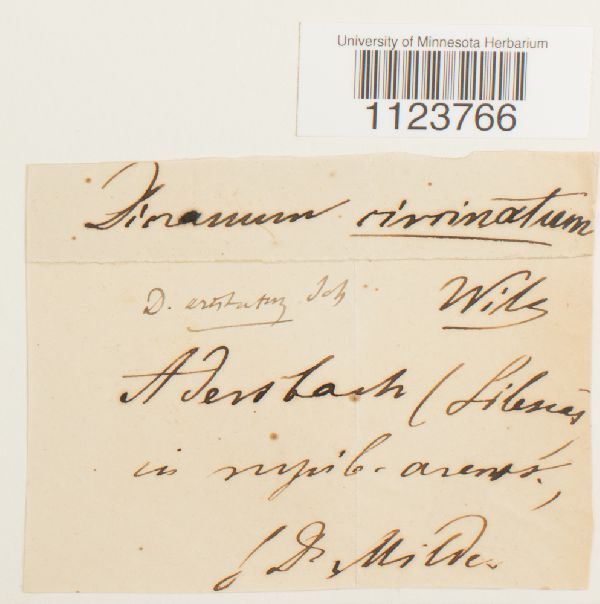 University of Minnesota Herbarium
1123766
Dicranum circinatum
D. aristatum Sch
Wils
Adersbach (Silesia
in rupib. arenos.,
Dr. Milde